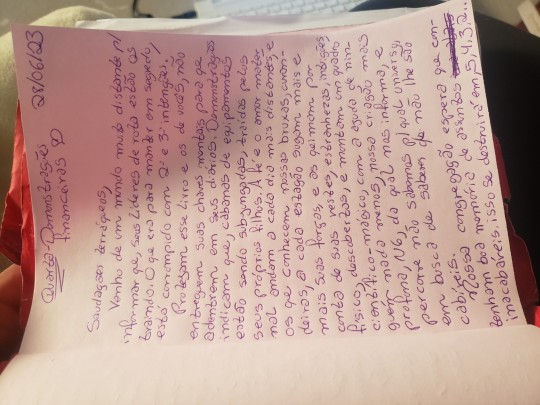 28/06/23
Quarta Demonstrações
financeiras
Saudações terráqueos,
Venho de um mundo muito distante p/
informar que, seus líderes de rota estão os
traindo. O que era para manter em segredo,
está corrompido com 2ª e 3ª intenções.
Protejam esse livro e os de vocês, não
entreguem suas chaves mentais para que
adentrem em seus diários. Demonstrações
indicam que, cabanas de equipamentos
estão sendo subjugados, traídos pelos
seus próprios filhos. A fé e o amor mater-
nal andam a cada dia mais distantes, e
os que conhecem, nossas bruxas, curan-
deiras, a cada estação sugam mais e
mais suas forças, e os queimam por
conta de suas vestes, estranhezas, indagações
físico, descobertas, e montam um quadro
científico-mágico, com a ajuda de nin-
guém nada menos, nossa criação mais
profana, N6, da qual nos informa, e
percorre não sabemos p/ qual universo,
em busca de saberes que não lhe são
cabíveis.
Nossa congregação espera que con-
tenham boa memória de assentos
inacabáveis. isso se destruirá em, 5, 4, 3, 2...